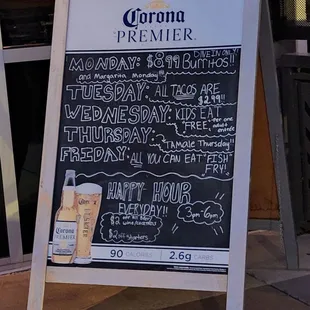 Corona
PREMIER
MONDAY: $8.99 DINE IN ONLY
Burritos!!
and Margarita Monday!!!
TUESDAY: All TACOS ARE
$2.99!!
WEDNESDAY: KIDS EAT
"FREE" per one
adult
THURSDAY: TAMALE Thursday!!
FRIDAY: ALL YOU CAN EAT "FISH"
FRY!
HAPPY HOUR
EVERYDAY!!!
3pm-6pm
Corona
PREMIER
90 CALORIES 2.6g CARBS